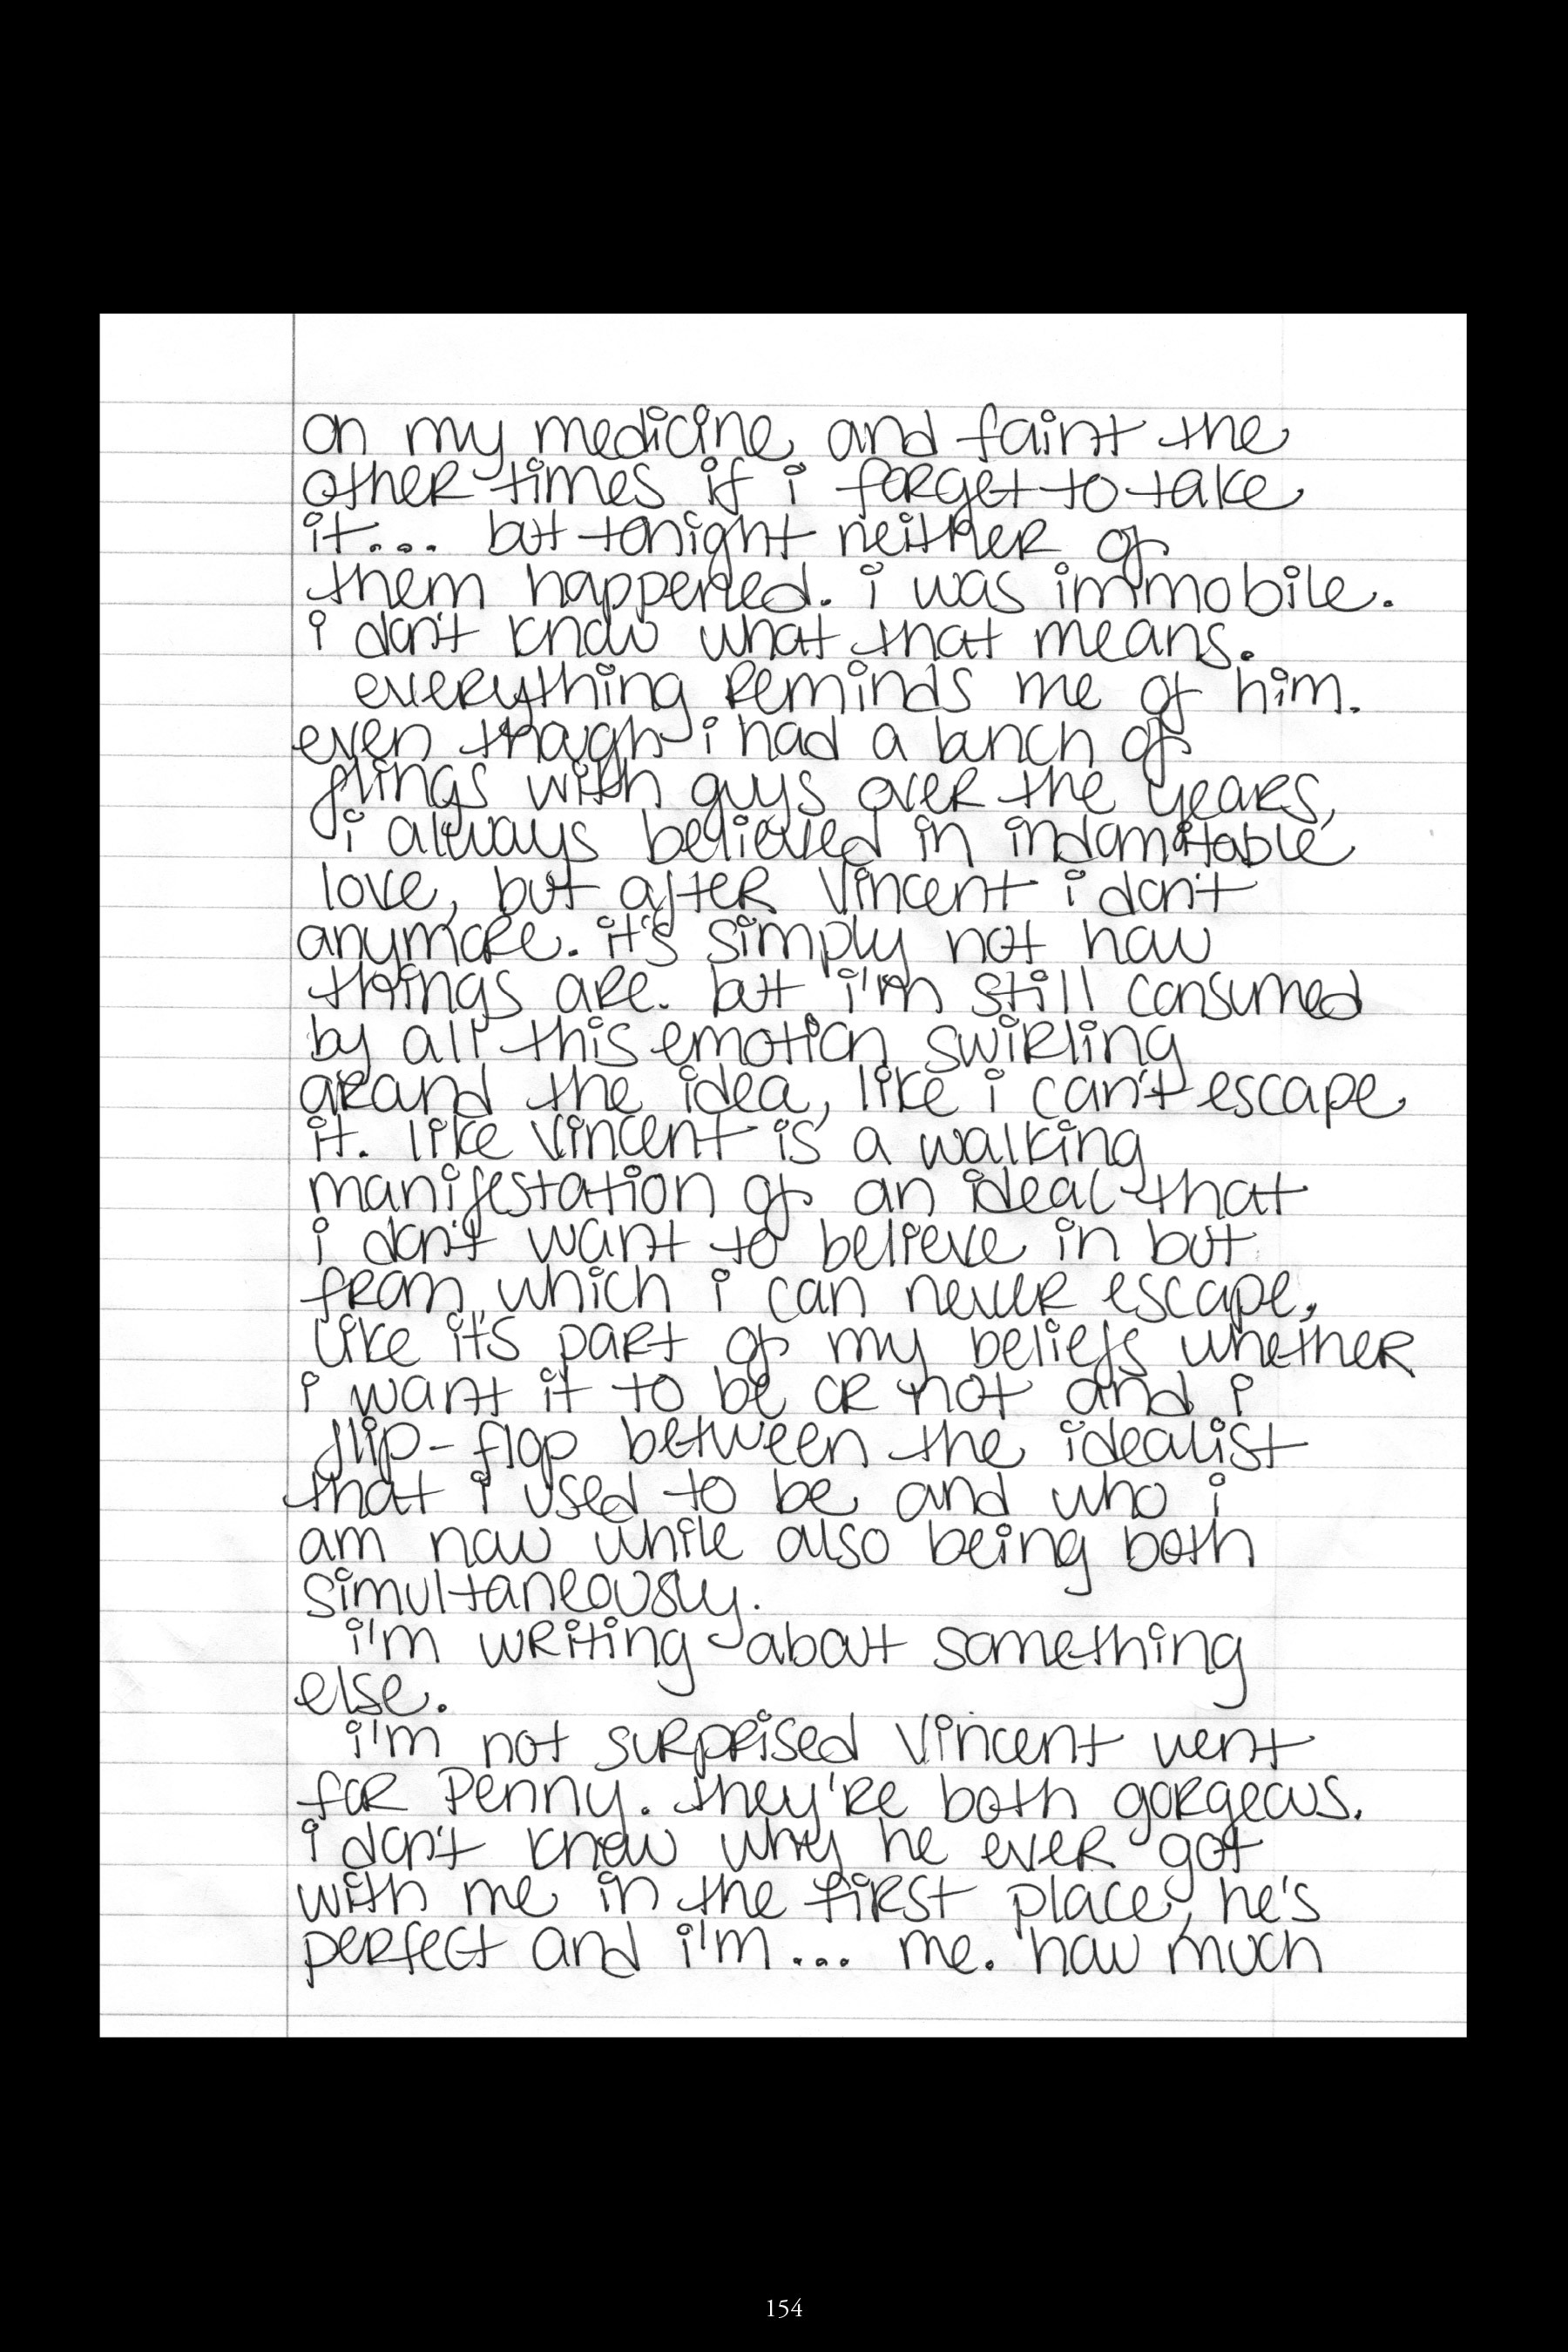 on my medicine and faint the
other times if i forget to take
it... but tonight neither of
them happened. i was immobile.
i don't know what that means.
everything reminds me of him.
even though i had a bunch of
flings with guys over the years,
i always believed in indomitable
love, but after Vincent i don't
anymore. it's simply not how
things are. but i'm still consumed
by all this emotion swirling
around the idea, like i can't escape
it. like Vincent is a walking
manifestation of an ideal that
i don't want to believe in but
from which i can never escape,
like it's part of my beliefs whether
i want it to be or not and i
flip-flop between the idealist
that i used to be and who i
am now while also being both
simultaneously.
i'm writing about something
else.
i'm not surprised Vincent went
for Penny. they're both gorgeous.
i don't know why he ever got
with me in the first place; he's
perfect and i'm... me. how much
154